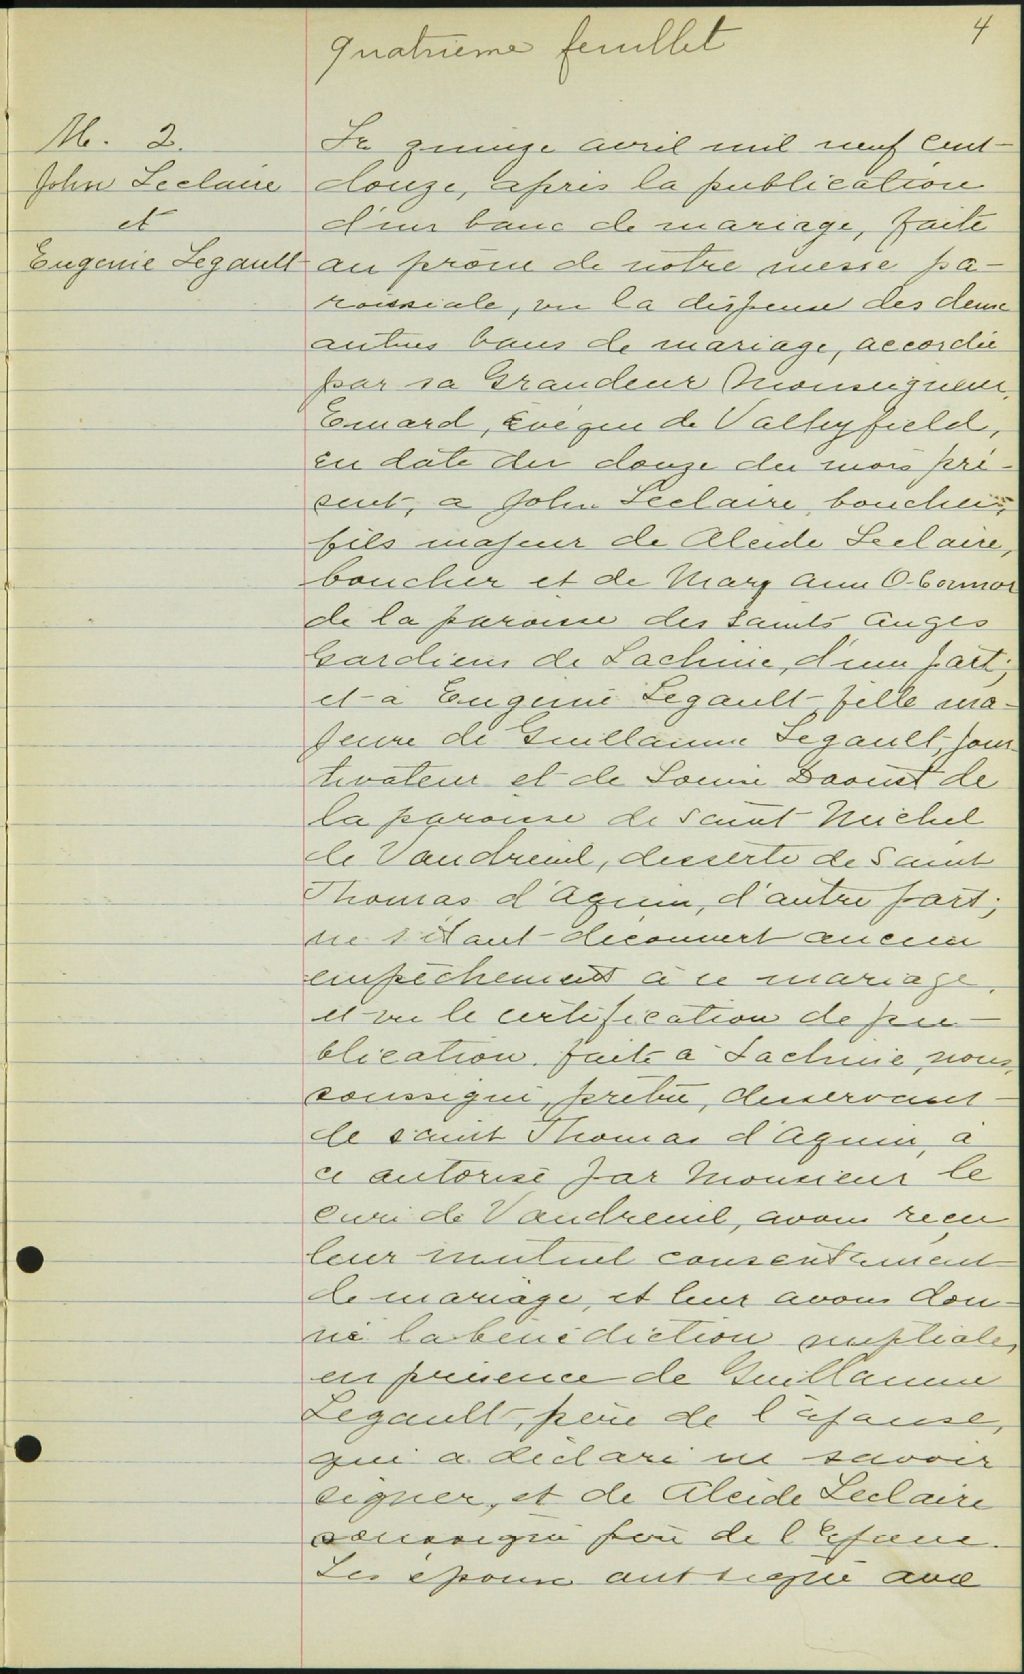 quatrieme feuillet
4
M. 2.
John Leclaire
et
Eugenie Legault
Le quinze avril mil neuf cent-
douze, après la publication
d'un banc de mariage, faite
au prône de notre messe pa-
roissiale, vu la dispense des deux
autres bans de mariage, accordée
par sa Grandeur Monseigneur,
Emard, Evèque de Valleyfield,
en date du douze du mois pré-
sent, a John Leclaire, boucher,
fils majeur de Alcide Leclaire,
boucher et de Mary Ann O'Connor
de la paroisse des saints Anges
Gardiens de Lachine, d'une part;
et à Eugenie Legault, fille ma-
jeure de Guillaume Legault,
tivateur et de Louise Daoust de
la paroisse de saint Michel
de Vaudreuil, desserte de saint
Thomas d'Aquin, d'autre part;
ne s'étant découvert aucun
empêchement à ce mariage,
et vu le certification de pu-
blication faite à Lachine, nous,
soussigné, prêtre, desservant
de saint Thomas d'Aquin, à
ce autorisé par Monsieur le
curé de Vaudreuil, avons reçu
leur mutuel consentement
de mariage, et leur avons don-
né la bénédiction nuptiale,
en présence de Guillaume
Legault, père de l'épouse,
qui a déclaré ne savoir
signer, et de Alcide Leclaire
soussigné père de l'Epoux.
Les époux ont signé avec